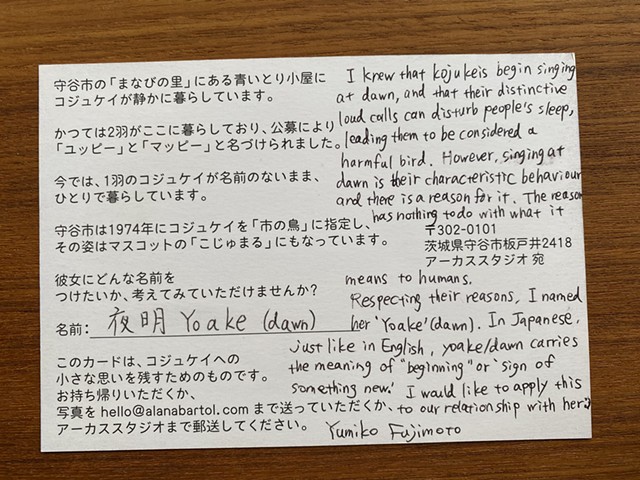 守谷市の「まなびの里」にある青いとり小屋に
コジュケイが静かに暮らしています。
かつては2羽がここに暮らしており、公募により
「ユッピー」と「マッピー」と名づけられました。
今では、1羽のコジュケイが名前のないまま、
ひとりで暮らしています。
守谷市は1974年にコジュケイを「市の鳥」に指定し、
その姿はマスコットの「こじゅまる」にもなっています。
彼女にどんな名前を
つけたいか、考えてみていただけませんか?
名前: 夜明 Yoake (dawn)
このカードは、コジュケイへの
小さな思いを残すためのものです。
お持ち帰りいただくか、
写真を hello@alanabartol.com まで送っていただくか、
アーカススタジオまで郵送してください。
I knew that kojukeis begin singing
at dawn, and that their distinctive
loud calls can disturb people's sleep,
leading them to be considered a
harmful bird. However, singing at
dawn is their characteristic behaviour
and there is a reason for it. The reason
has nothing to do with what it
〒302-0101
茨城県守谷市板戸井2418
アーカススタジオ 宛
means to humans.
Respecting their reasons, I named
her 'Yoake' (dawn). In Japanese,
just like in English, yoake/dawn carries
the meaning of "beginning" or 'sign of
something new.'
I would like to apply this
to our relationship with her:)
Yumiko Fujimoto